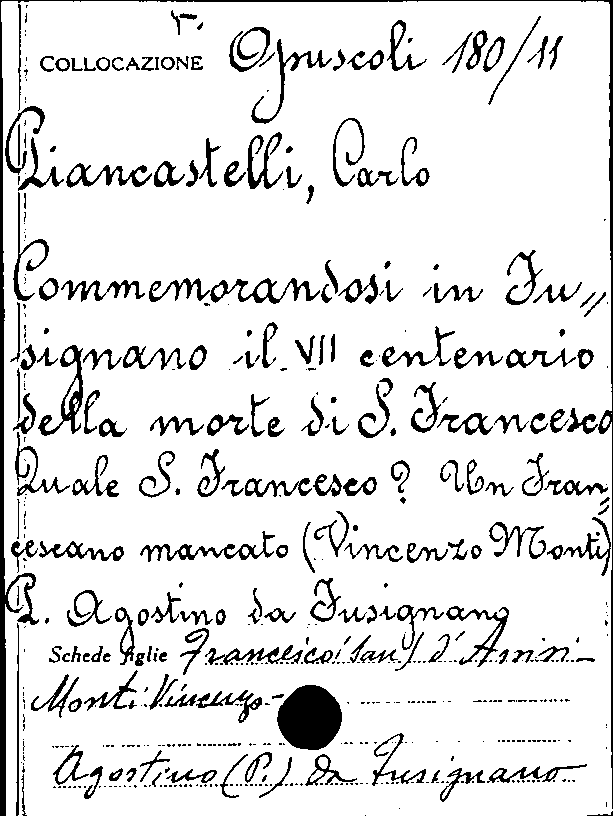 COLLOCAZIONE Opuscoli 180/11
Piancastelli, Carlo
Commemorandosi in Fu„
signano il VII centenario
della morte di S. Francesco
Quale S. Francesco? Un Fran„
cescano mancato (Vincenzo Monti)
P. Agostino da Fusignano
Schede figlie Francesco (san) d'Assisi -
Monti Vincenzo -
Agostino (P.) da Fusignano